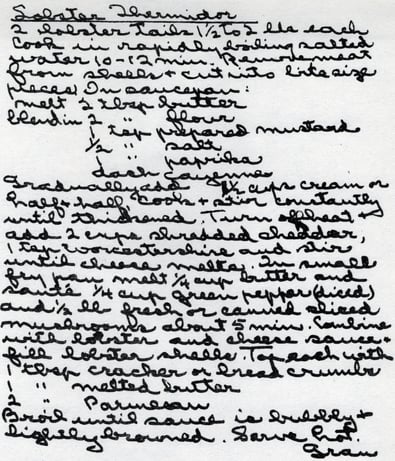 Lobster Thermidor
2 lobster tails 1½ to 2 lbs each
Cook in rapidly boiling salted
water 10-12 min. Remove meat
from shells + cut into bite size
pieces. In saucepan:
melt 2 tbsp butter
blend in 2 " flour
1 tsp prepared mustard
½ " salt
" paprika
dash cayenne
Gradually add 1½ cups cream or
half + half. Cook + stir constantly
until thickened. Turn off heat +
add 2 cups shredded cheddar,
1 tsp worcestershire and stir
until cheese melts. In small
fry pan melt ¼ cup butter and
sauté ¼ cup green pepper (diced)
and ½ lb fresh or canned sliced
mushrooms about 5 min. Combine
with lobster and cheese sauce +
fill lobster shells. Top each with
1 tbsp cracker or bread crumbs
1 " melted butter
2 " Parmesan
Broil until sauce is bubbly +
lightly browned. Serve hot.
Gram